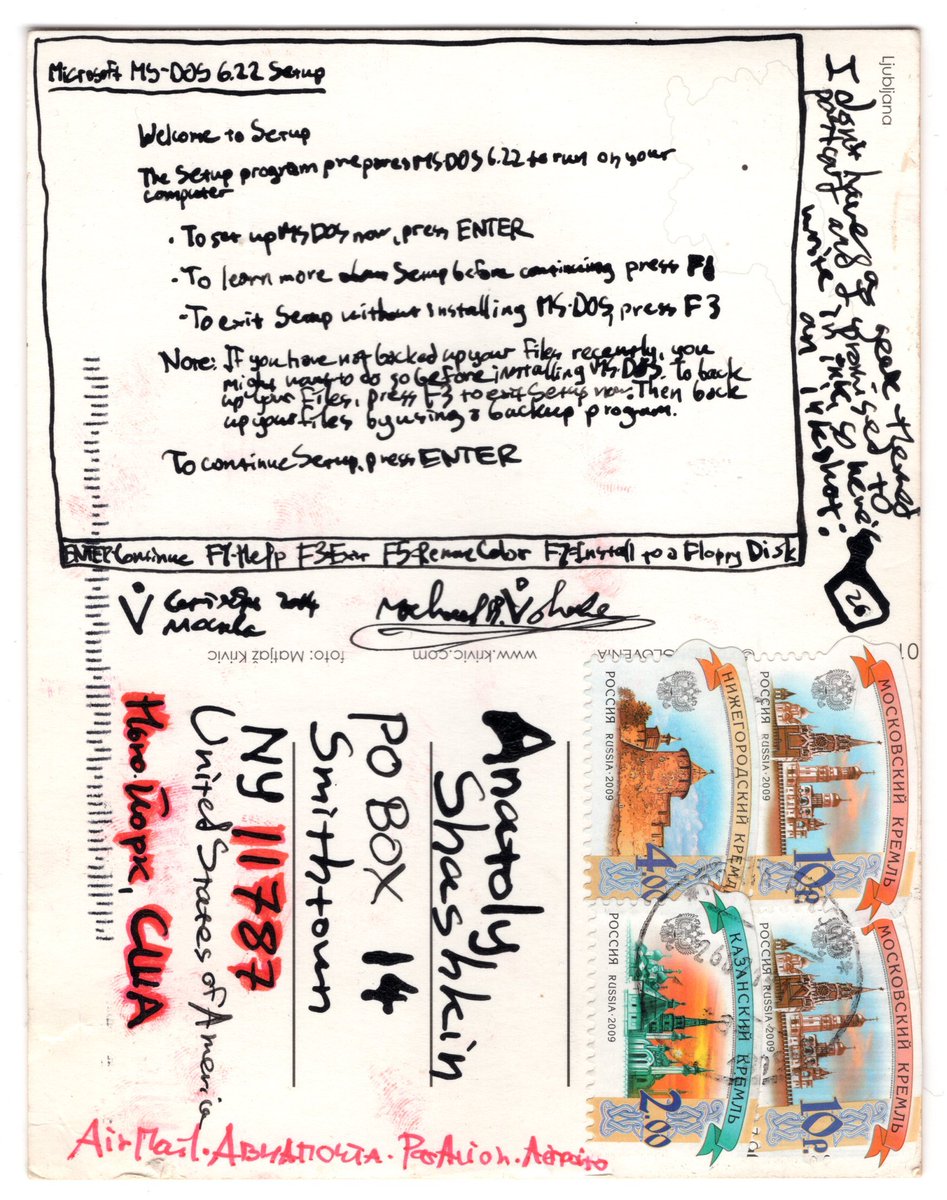 Microsoft MS-DOS 6.22 Setup
Welcome to Setup
The Setup program prepares MS-DOS 6.22 to run on your
computer
· To set up MS DOS now, press ENTER
· To learn more about Setup before continuing press F1
· To exit Setup without installing MS-DOS, press F3
Note: If you have not backed up your files recently, you
might want to do so before installing MS-DOS. To back
up your files, press F3 to exit Setup now. Then back
up your files by using a backup program.
To continue Setup, press ENTER
ENTER=Continue F1=Help F3=Exit F5=Remove Color F7=Install to a Floppy Disk
Ljubljana
I don't have any geek themed
postcard and I promised to
write in ink, so here's
an inkshot:
26
Сентябрь 2014
Москва
foto: Matjaž Krivic
www.krivic.com
SLOVENIA
Anatoly
Shashkin
PO BOX 14
Smithtown
NY 11787
United States of America
Нью-Йорк, США
НИЖЕГОРОДСКИЙ КРЕМЛЬ
РОССИЯ RUSSIA·2009
4.00
МОСКОВСКИЙ КРЕМЛЬ
РОССИЯ RUSSIA·2009
10р.
КАЗАНСКИЙ КРЕМЛЬ
РОССИЯ RUSSIA·2009
2.00
МОСКОВСКИЙ КРЕМЛЬ
РОССИЯ RUSSIA·2009
10р.
AirMail. АВИАПОЧТА. Par Avion.